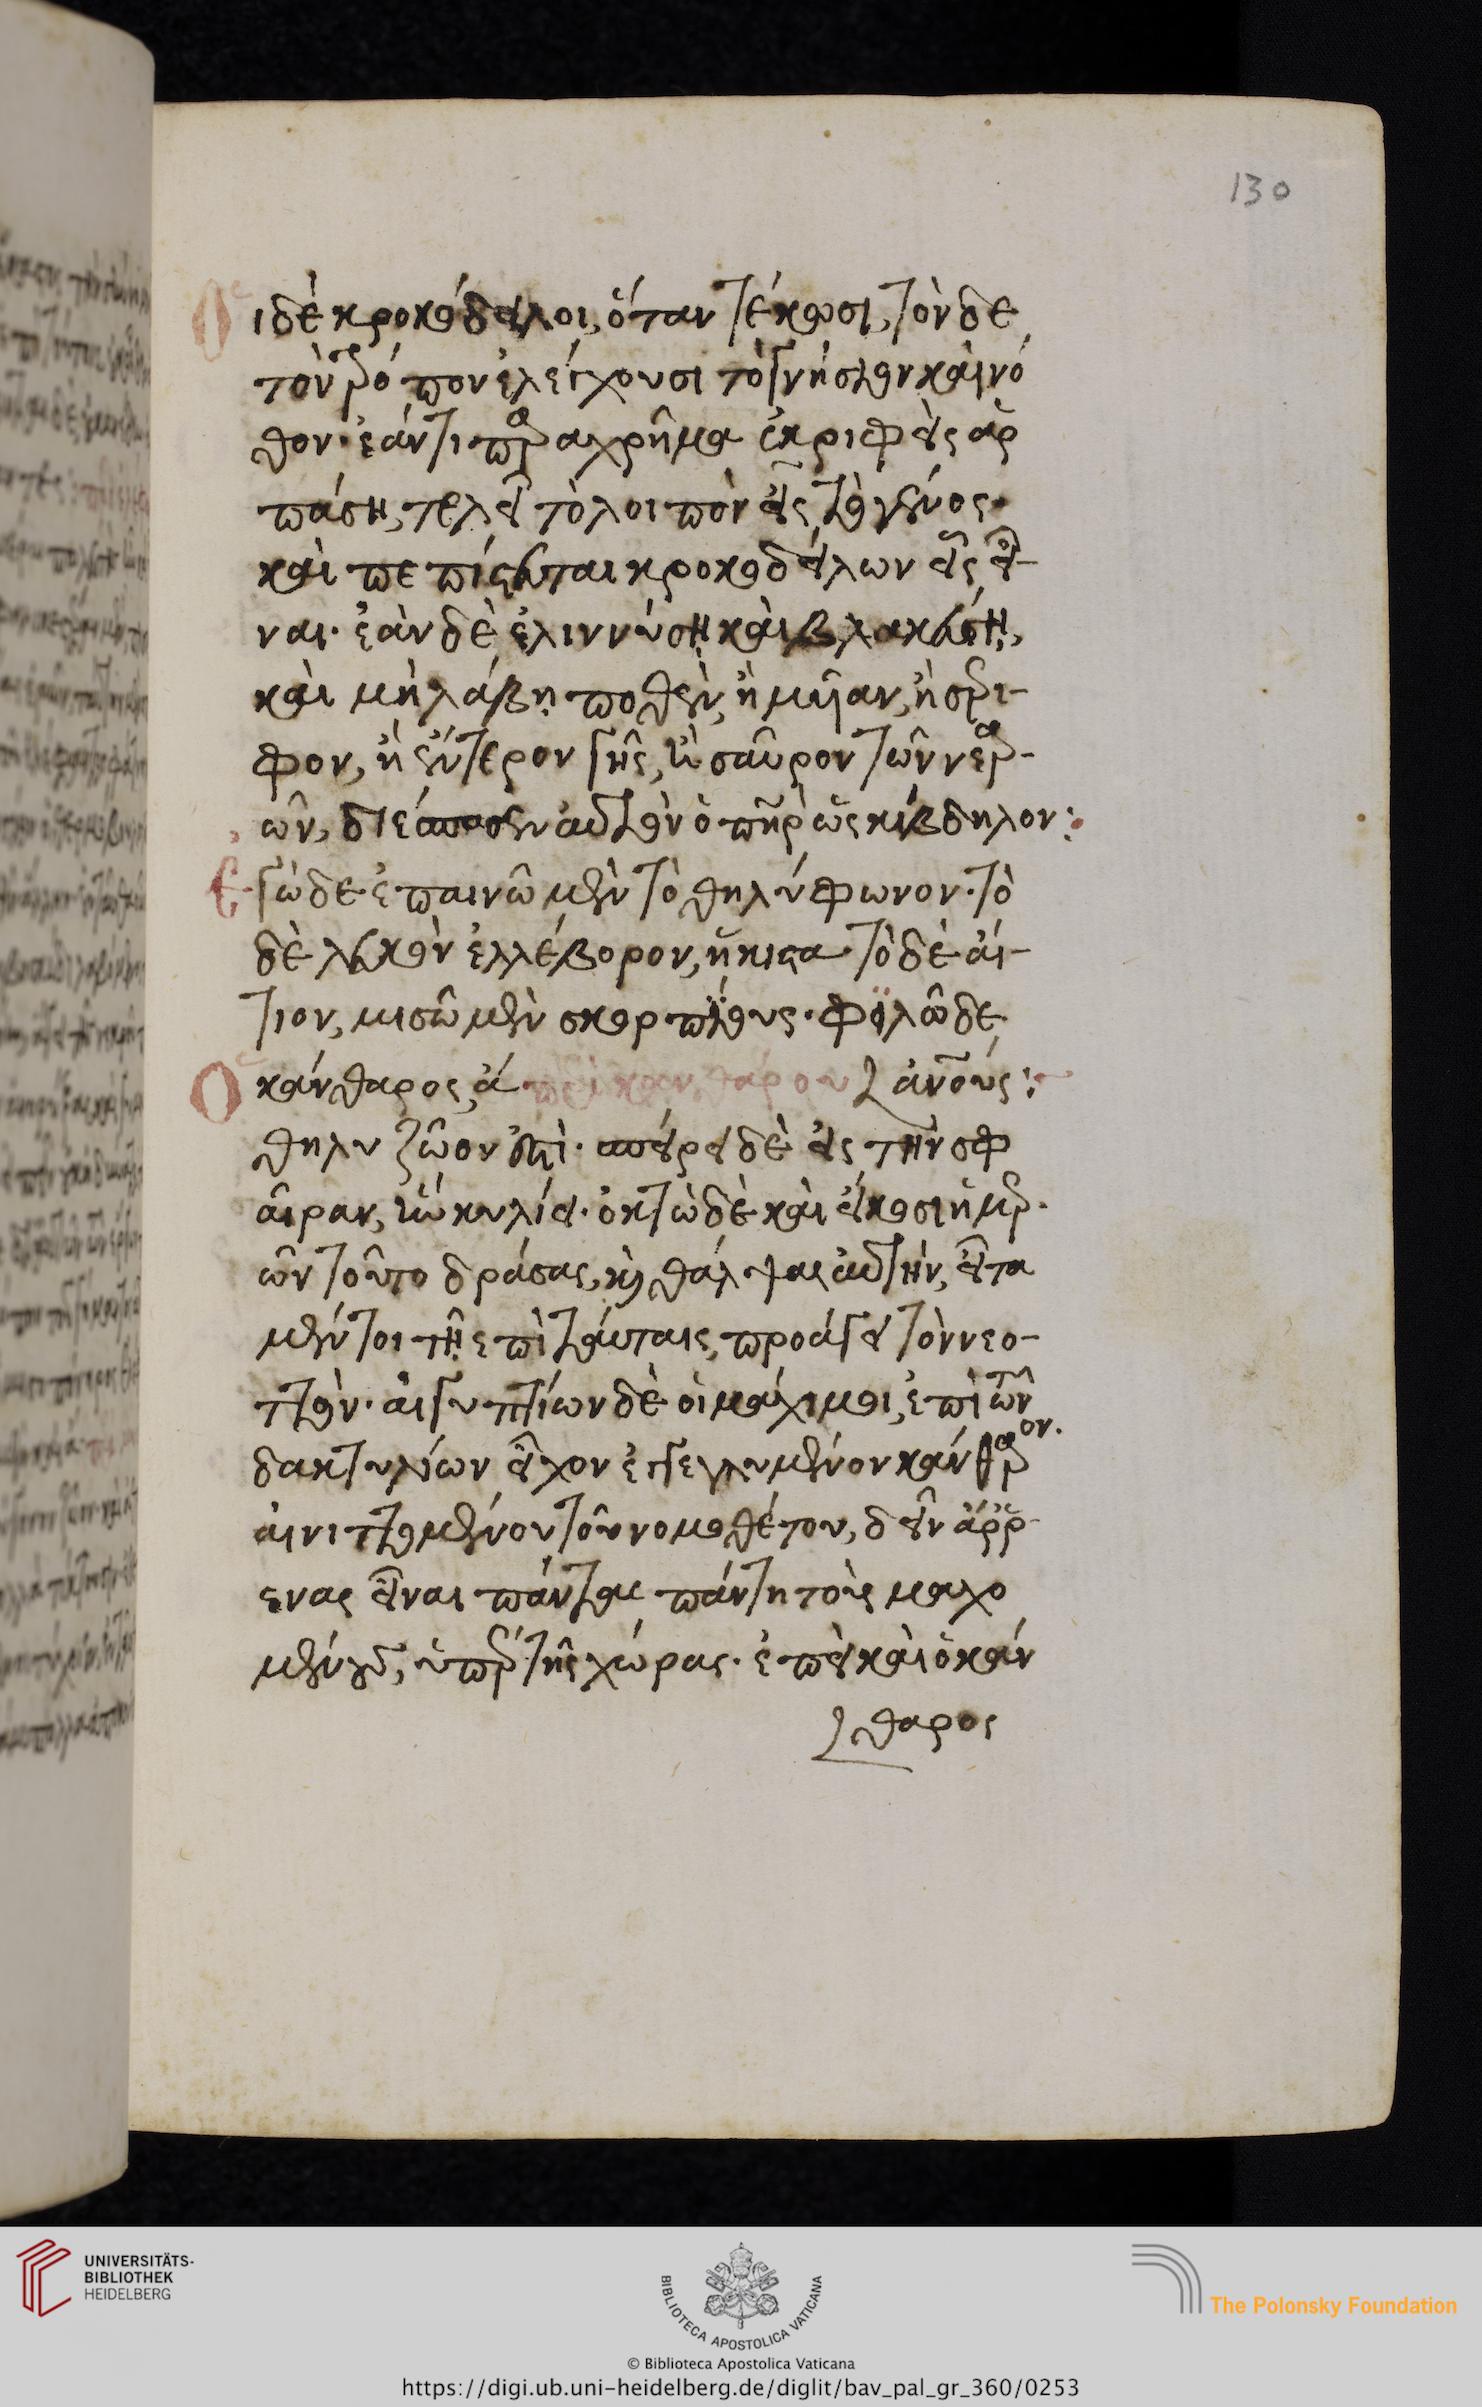 130
Οἱ δὲ κροκόδειλοι, ὅταν τέκωσι, τόνδε
τὸν τρόπον ἐλέγχουσι τὸ γνήσιον καὶ νό
θον· ἐάν τι παραχρῆμα ἐκριφεὶς ἁρ
πάσῃ, τελεῖ τὸ λοιπὸν εἰς τὸ γένος·
καὶ πεπίστευται κροκοδείλων εἷς εἶ-
ναι. ἐὰν δὲ ἐλιννύσῃ καὶ βλακεύσῃ,
καὶ μὴ λάβῃ ποθὲν, ἢ μυῖαν, ἢ σέρι-
φον, ἢ ἔντερον γῆς, ἢ σαῦρον τῶν νεαρ-
ῶν, διέσπασεν αὐτὸν ὁ πατὴρ ὡς κίβδηλον:
Ἐγὼ δὲ ἐπαινῶ μὲν τὸ θηλύφωνον· τὸ
δὲ λευκὸν ἐλλέβορον, ἥκιστα· τὸ δὲ αἴ-
τιον, μισῶ μὲν σκορπίους· φιλῶ δὲ
ἀνθρώπους:
περὶ κανθάρου
Ὁ κάνθαρος, ἄ
θηλυ ζῶον ἐστὶ· σπείρει δὲ εἰς τὴν σφ
αῖραν, ἣν κυλίει· ὀκτὼ δὲ καὶ εἴκοσι ἡμερ
ῶν τοῦτο δράσας, καὶ θάλψας αὐτὴν, εἶτα
μέντοι τῇ ἐπὶ ταύταις, προάγει τὸν νεο-
ττόν. αἰγυπτίων δὲ οἱ μάχιμοι, ἐπὶ τῶν
δακτυλίων εἶχον ἐγγεγλυμμένον κάνθαρον.
αἰνιττομένου τοῦ νομοθέτου, δεῖν ἄρρ-
ενας εἶναι πάντως πάντη τοὺς μαχο
μένους, ὑπὲρ τῆς χώρας. ἐπεὶ καὶ ὁ κάν
θαρος
UNIVERSITÄTS-
BIBLIOTHEK
HEIDELBERG
BIBLIOTECA APOSTOLICA VATICANA
The Polonsky Foundation
© Biblioteca Apostolica Vaticana
https://digi.ub.uni-heidelberg.de/diglit/bav_pal_gr_360/0253